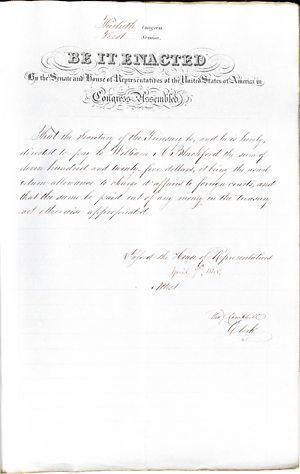 Thirtieth Congress
First Session,
BE IT ENACTED
By the Senate and House of Representatives of the United States of America in
Congress Assembled,
That the Secretary of the Treasury be, and he is hereby,
directed to pay to William M. Blackford the sum of
eleven hundred and twenty five dollars, it being the usual
return allowance to charge d'affairs to foreign courts, and
that the same be paid out of any money in the treasury
not otherwise appropriated.
Passed the House of Representatives
April 7th, 1848.
Attest
Tho. J. Campbell
Clerk